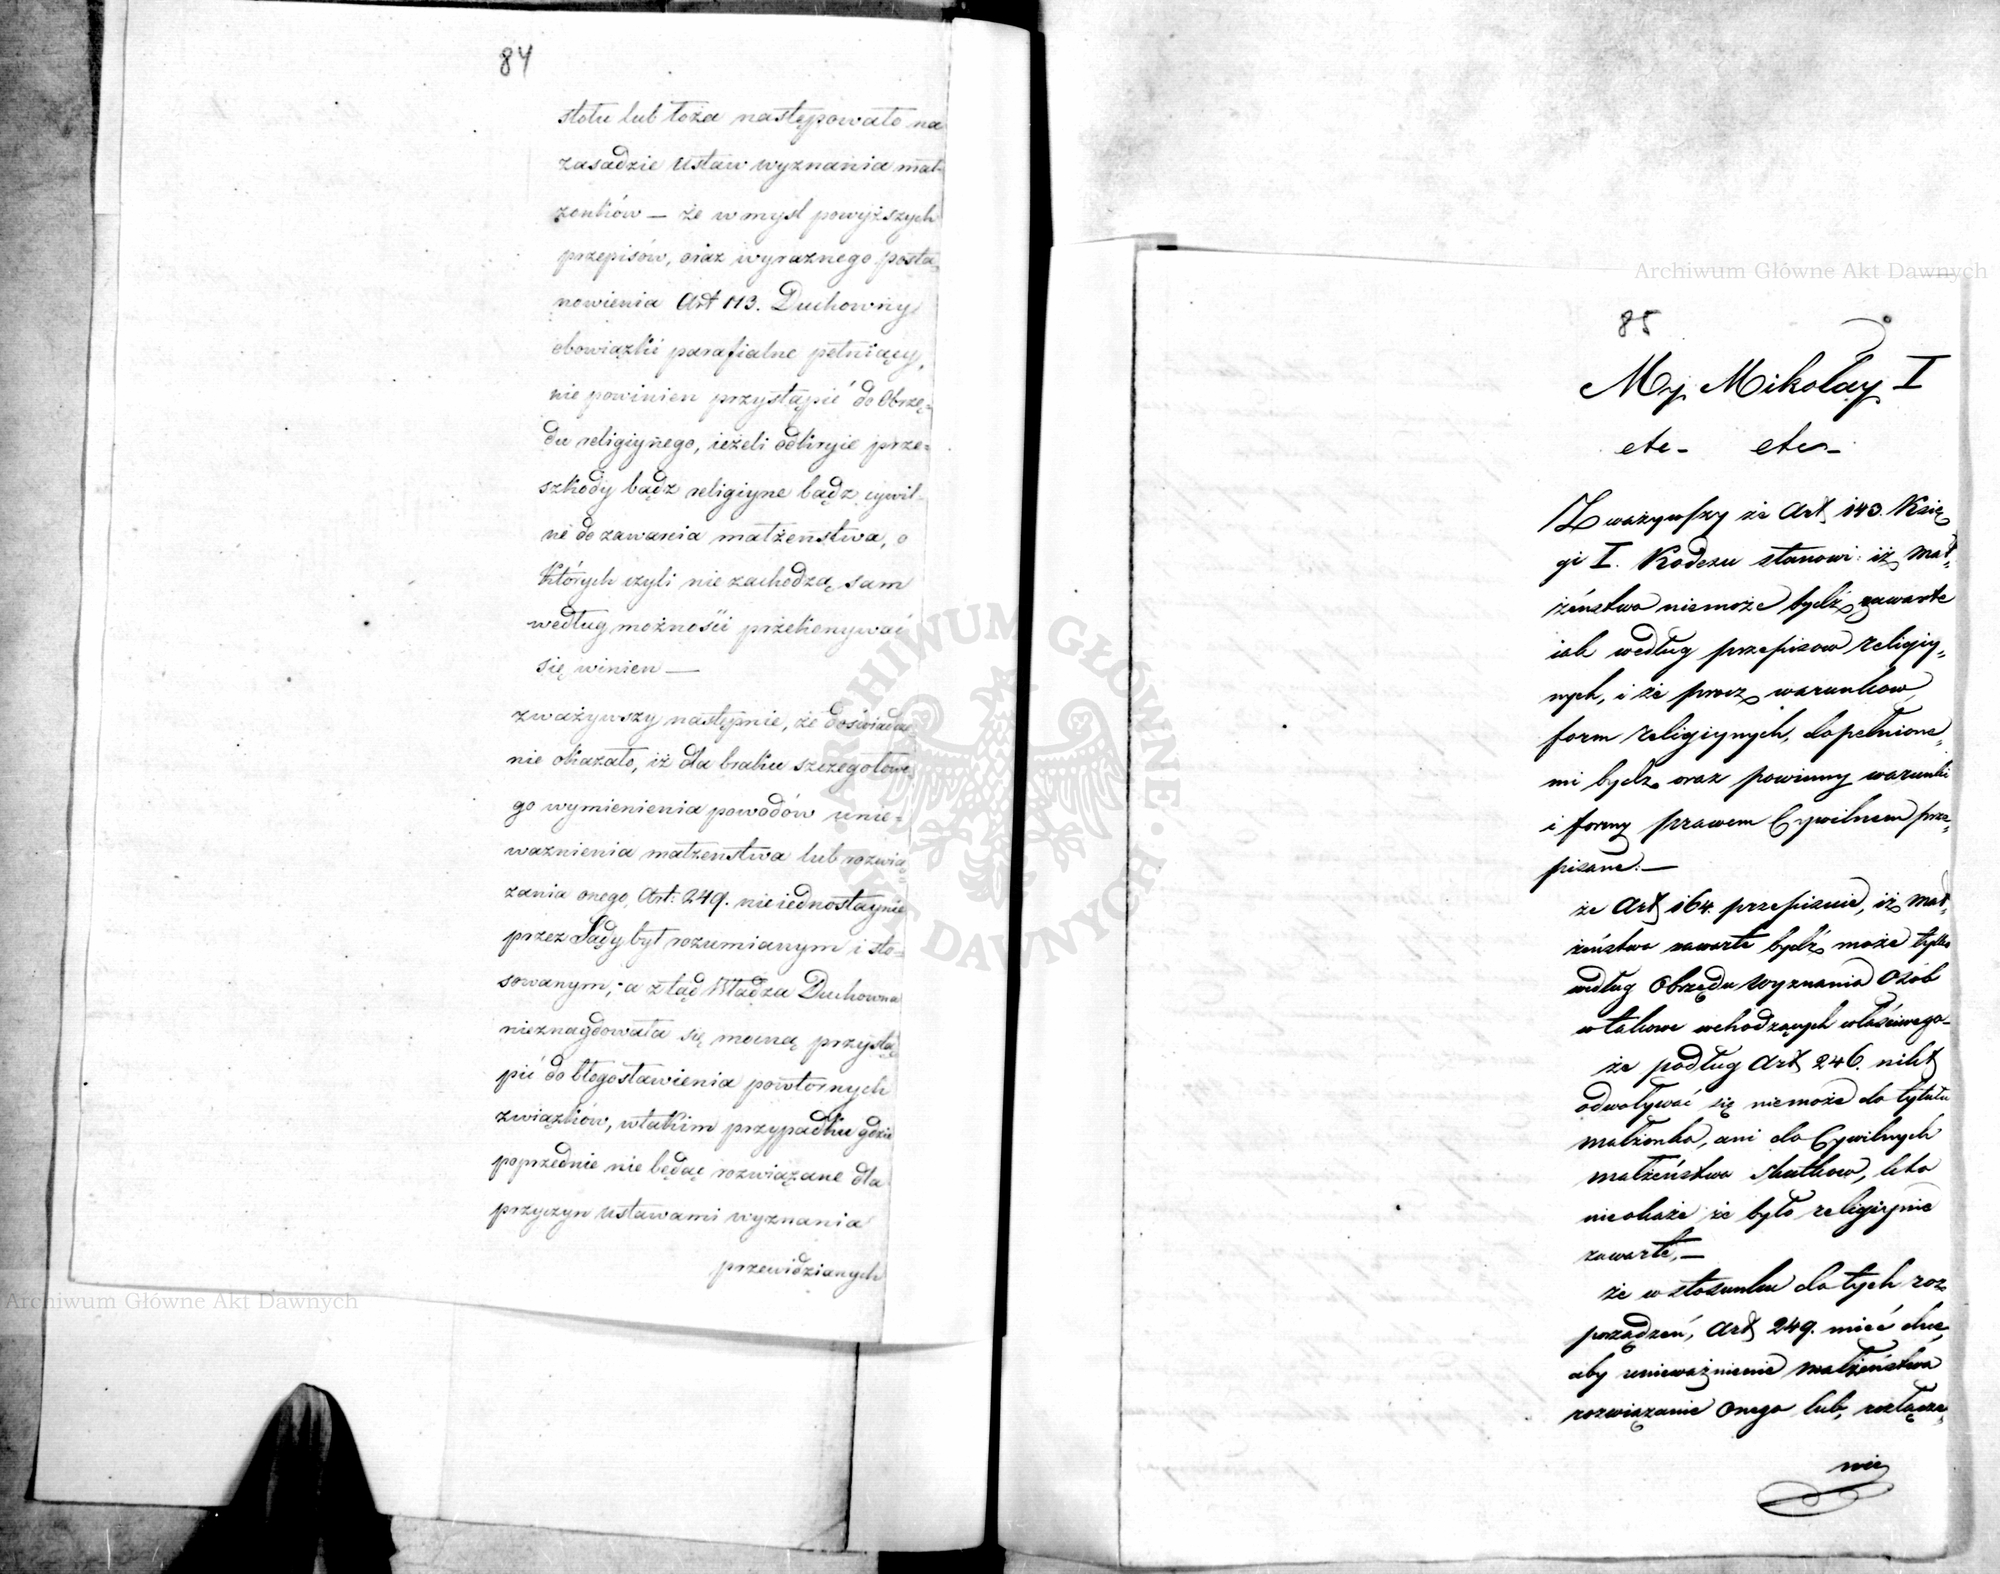 84
stołu lub łoża następowało na
zasadzie ustaw wyznania mał-
żonków — że w myśl powyższych
przepisów, oraz wyraznego posta-
nowienia Art 113. Duchowny
obowiązki parafialne pełniący,
nie powinien przystąpić do Obrzę-
du religiynego, ieżeli odkryie prze-
szkody bądź religiyne bądz cywil-
ne do zawarcia małżeństwa, o
których czyli nie zachodzą, sam
według możności przekonywać
się winien —
zważywszy następnie, że doświadcze-
nie okazało, iż dla braku szczegołowe-
go wymienienia powodów unie-
ważnienia małżeństwa lub rozwią-
zania onego, Art: 249. nieiednostaynie
przez Sądy był rozumianym i sto-
sowanym; a ztąd Władza Duchowna
nieznaydowała się mocną przystą-
pić do błogosławienia powtornych
związków, w takim przypadku gdzie
poprzednie nie będąc rozwiązane dla
przyczyn ustawami wyznania
przewidzianych
85
My Mikołay I
etc - etc -
Zważywszy że Art 143. Księ
gi I. Kodexu stanowi: iż mał-
żeństwo niemoże bydź zawarte
iak według przepisow religiy-
nych, i że procz warunkow
form religiynych, dopełnione-
mi bydz oraz powinny warunki
i formy prawem Cywilnem prze-
pisane. —
że Art 164. przepisuie, iż mał-
żeństwo zawarte bydź może tylko
według Obrzędu Wyznania Osób
w takowe wchodzących właściwego -
że podług Art 246. nikt
odwoływać się niemoże do tytułu
małżonka, ani do Cywilnych
małżeństwa skutkow, kto
nieokaże że było religiynie
zawarte, —
że w stosunku do tych roz-
porządzeń, Art 249. mieć chce,
aby unieważnienie małżeństwa
rozwiązanie onego lub, rozłącze-
nie
Archiwum Główne Akt Dawnych
Archiwum Główne Akt Dawnych
ARCHIWUM GŁÓWNE AKT DAWNYCH